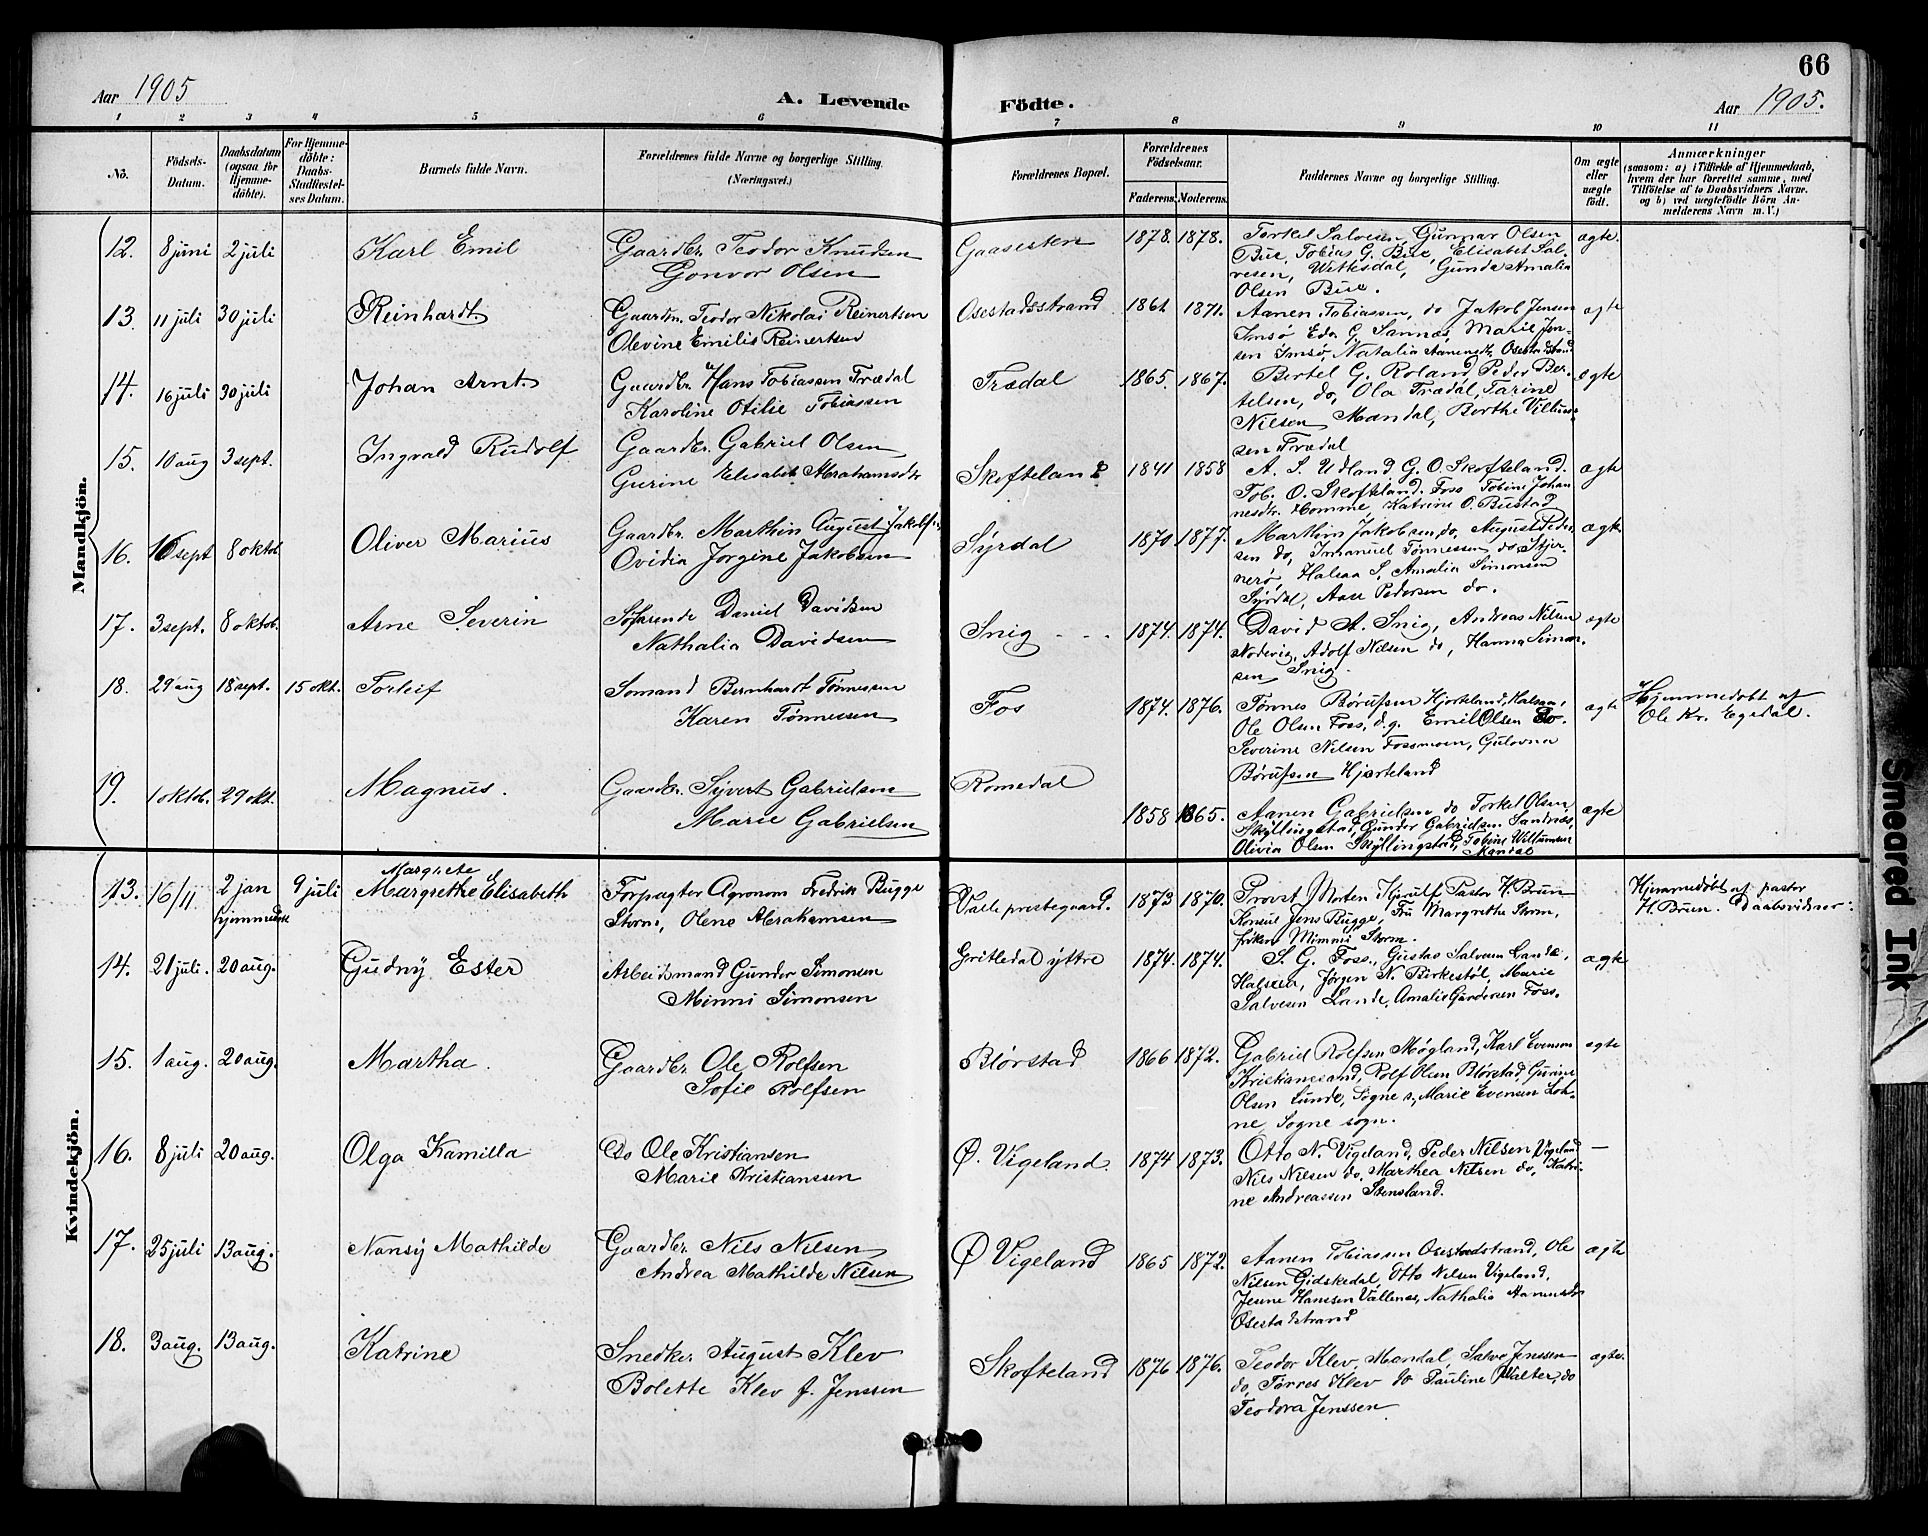 66
Aar 1905
A. Levende Födte.
Aar 1905.
1 2 3 4 5 6 7 8 9 10 11
No.
Födsels-Datum.
Daabsdatum (ogsaa for Hjemme-döbte).
For Hjemme-döbte: Daabs-Stadfæstel-ses Datum.
Barnets fulde Navn.
Forældrenes fulde Navne og borgerlige Stilling. (Næringsvei.)
Forældrenes Bopæl.
Forældrenes Födselsaar.
Faderens. Moderens.
Faddernes Navne og borgerlige Stilling.
Om ægte eller uægte födt.
Anmærkninger
(saasom: a) i Tilfælde af Hjemmedaab,
hvem der har forrettet samme, med
Tilföielse af to Daabsvidners Navne.
og b) ved uægtefödte Börn An-
melderens Navn m. V.)
Mandkjön.
12. 8 juni 2 juli Karl Emil
Gaardbr. Teodor Knudsen
Gonvor Olsen
Gaasesten 1878. 1878.
Torkel Salvesen, Gunnar Olsen
Bue, Tobias G. Bue, Elisabet Sal-
vesen, Witksdal, Gunda Amalia
Olsen Bue.
ægte.
13. 11 juli 30 juli Reinhardt
Gaardbr. Teodor Nikolai Reinertsen
Olevine Emilie Reinertsen
Osestadsstrand 1861 1871.
Aanen Tobiassen, do Jakob Jensen
Imsø Edv. G. Sannæs, Marie Jen-
sen Imsø, Natalia Aanensdtr. Osestadstrand
ægte
14. 16 juli 30 juli Johan Arnt.
Gaardbr. Hans Tobiassen Trædal
Karoline Otilie Tobiassen
Trædal 1865. 1867.
Bertel G. Roland, Peder Ber-
telsen, do, Ola Trædal, Tarine
Nilsen Mandal, Berthe Villum-
sen Trædal
ægte
15. 10 aug 3 sept. Ingvald Rudolf
Gaardbr. Gabriel Olsen
Gurine Elisabet Abrahamsdtr
Skofteland 1841 1858
A. S. Udland G. O. Skofteland.
Tob. O. Skofteland. Foss Tobine Johan
nesdtr. Homme, Katrine O. Bustad
ægte
16. 16 sept 8 oktob. Oliver Marius
Gaardbr. Marthin August Jakobsen
Ovidia Jorgine Jakobsen
Syrdal 1870 1877.
Marthin Jakobsen do, August Peder-
sen do, Imanuel Tønnessen do, Stjer-
nerø, Halsaa S, Amalia Simonsen
Syrdal, Aase Pedersen do.
ægte
17. 3 sept. 8 oktob. Arne Severin
Søfarende Daniel Davidsen
Nathalia Davidsen
Snig 1874. 1874.
David A. Snig, Andreas Nilsen
Nodevig, Adolf Nilsen do, Hanna Simon-
sen Snig.
ægte
18. 29 aug 18 sept. 15 okt. Torleif
Sømand Bernhardt Tønnessen
Karen Tønnessen
Fos 1874. 1876.
Tønnes Børufsen Hjorteland, Halsaa,
Ole Olsen Foss, d.g. Emil Olsen do.
Severine Nilsen Fossmoen, Gulovna
Børufsen Hjorteland
ægte
Hjemmedøbt af
Ole Kr. Egsdal.
19. 1 oktob. 29 okt. Magnus.
Gaardbr. Syvert Gabrielsen
Marie Gabrielsen
Romedal 1858 1865.
Aanen Gabrielsen do Torkel Olsen
Skyllingstad, Gunder Gabrielsen Sandnæs,
Olivia Olsen Skyllingstad, Tobine Willumsen
Mandal
ægte
Kvindekjön.
13. 16/11 2 jan hjemmedøbt 9 juli
Margrete
Margrethe Elisabeth
Forpagter Agronom Fredrik Bugge
Storm, Olene Abrahamsen
Valle prestegaard. 1873 1870.
Provst Morten Kjerulf Pastor H. Brun
Konsul Jens Bugge, Fru Margrethe Storm,
frøken Mimmi Storm.
Hjemmedøbt af pastor
H. Brun. Daabsvidner:
14. 21 juli. 20 aug. Gudny Ester
Arbeidsmand Gunder Simonsen
Minni Simonsen
Gritledal yttre 1874. 1874.
S. G. Foss., Gustav Salvesen Lande,
Halsaa, Jørgen N. Birkestøl, Marie
Salvesen Lande, Amalie Gundersen Foss.
ægte
15. 1 aug. 20 aug. Martha.
Gaardbr. Ole Rolfsen
Sofie Rolfsen
Blørstad 1866 1872.
Gabriel Rolfsen Møgland, Karl Evensen
Kristianssand, Rolf Olsen Blørstad, Gurine
Olsen Lunde, Søgne s, Marie Evensen Loh-
ne, Søgne sogn.
ægte
16. 8 juli 20 aug. Olga Kamilla
Do Ole Kristiansen
Marie Kristianssen
Ø. Vigeland. 1874 1873.
Otto N. Vigeland, Peder Nilsen Vigeland
Nils Nilsen do, Marthea Nilsen do, Katri-
ne Andreassen Stensland.
—
17. 25 juli 13 aug. Nansy Mathilde
Gaardbr. Nils Nilsen
Andrea Mathilde Nilsen
Ø Vigeland 1865 1872.
Aanen Tobiassen Osestadstrand, Ole
Nilsen Gidskedal, Otto Nilsen Vigeland,
Jesine Hanssen Vallenes, Nathalia Aanensdtr
Osestadstrand
ægte
18. 3 aug. 13 aug. Katrine
Snedker August Klev
Bolette Klev f. Jenssen
Skofteland 1876 1876.
Teodor Klev, Mandal, Salve Jenssen
do, Tørres Klev do Pauline Walter, do
Teodora Jenssen
ægte.
Smeared Ink